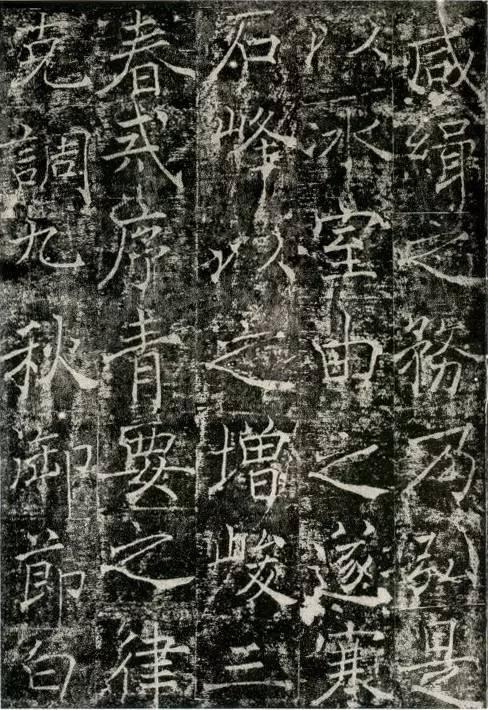 咸緝之務乃弘是
以冰室由之遂寒
石峰以之增峻三
春戒序青要之律
克調九秋御節白